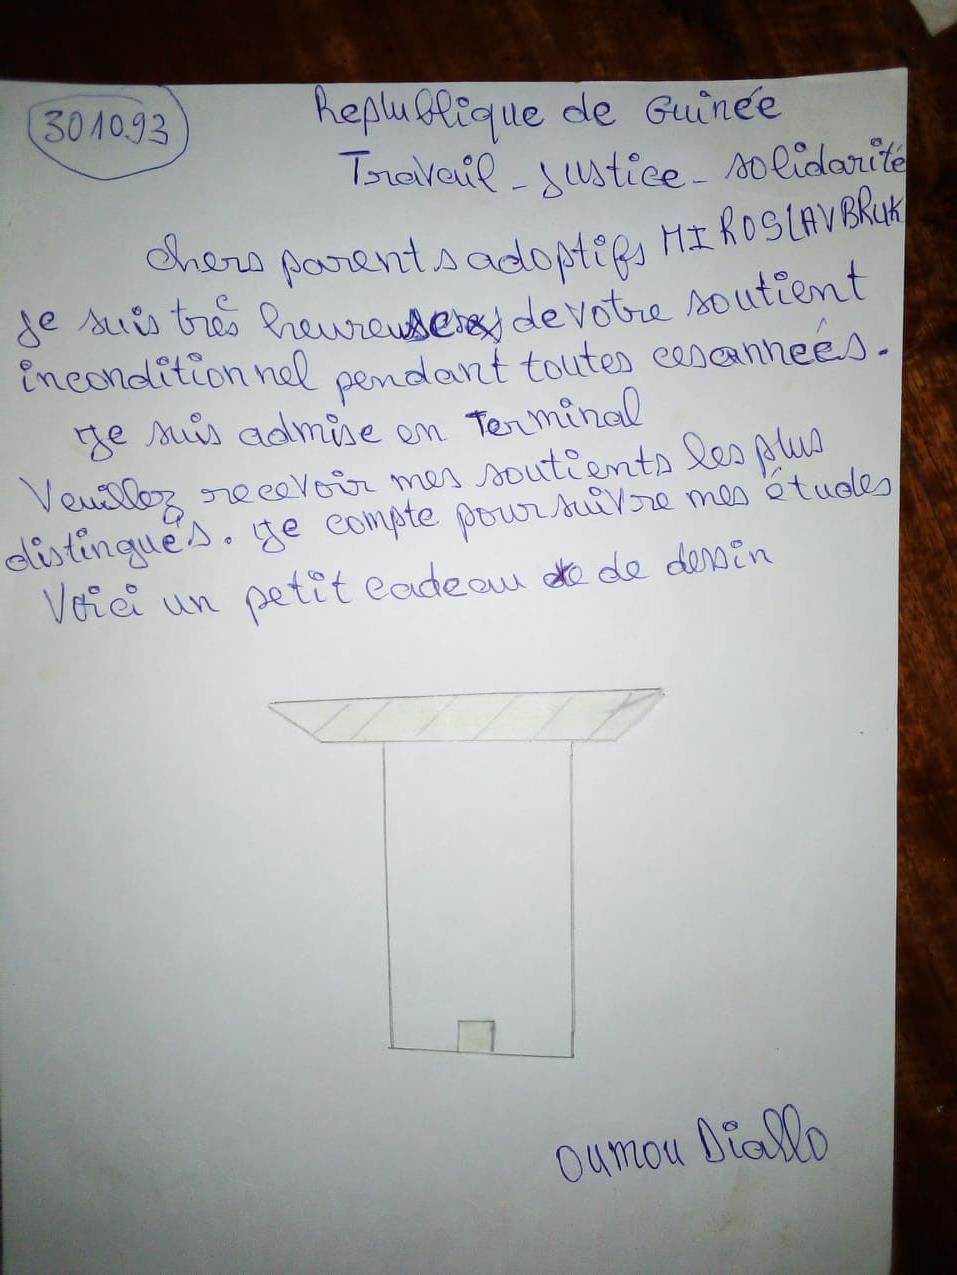 301093
Republique de Guinée
Travail - Justice - solidarité
chers parents adoptifs MIROSLAVBRUK
je suis très heureuse de votre soutient
inconditionnel pendant toutes ces années.
je suis admise en Terminal
Veuillez recevoir mes soutients les plus
distingués. je compte poursuivre mes études
Voici un petit cadeau de dessin
oumou Diallo